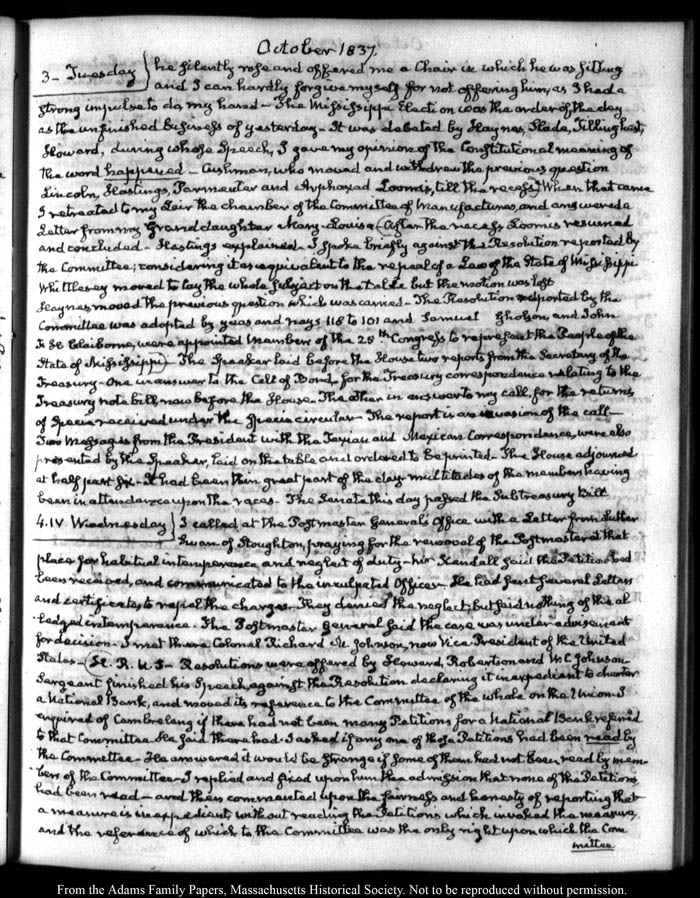 October 1837.
3 - Tuesday } he silently rose and offered me a Chair in which he was sitting
and I can hardly forgive myself for not offering him, as I had a
strong impulse to do, my hand - The Mississippi Election was the order of the day
as the unfinished business of yesterday - It was debated by Haynes, Slade, Tillinghast,
Howard, during whose Speech, I gave my opinion of the Constitutional meaning of
the word happened - Cushman, who moved and withdrew the previous question
Lincoln, Hastings, Parmenter and Arphaxad Loomis, till the recess. When that came
I retreated to my Lair the chamber of the Committee of Manufactures, and answered a
Letter from my Granddaughter Mary-Louisa (After the recess Loomis resumed
and concluded - Hastings explained - I spoke briefly against the Resolution reported by
the Committee; considering it as equivalent to the repeal of a Law of the State of Mississippi
Whittlesey moved to lay the whole subject on the table but the motion was lost
Haynes moved the previous question which was carried - The Resolution reported by the
Committee was adopted by yeas and nays 118 to 101 and Samuel Gholson, and John
F. H. Claiborne, were appointed Members of the 25th Congress to represent the People of the
State of Mississippi) The Speaker laid before the House two reports from the Secretary of the
Treasury - One in answer to the Call of Bond, for the Treasury correspondence relating to the
Treasury note bill now before the House. The other in answer to my call, for the returns
of Specie received under the Specie circular - The report is an evasion of the call -
Two Messages from the President with the Texian and Mexican Correspondence, were also
presented by the Speaker, laid on the table and ordered to be printed - The House adjourned
at half past six - It had been thin great part of the day multitudes of the members having
been in attendance upon the races - The Senate this day passed the Subtreasury Bill
4. IV Wednesday } I called at the Postmaster General's Office with a Letter from Luther
Swan of Stoughton, praying for the removal of the Postmaster at that
place for habitual intemperance and neglect of duty - Mr Kendall said the Petition had
been received, and communicated to the inculpated Officer - He had sent several Letters
and certificates to repel the charges. They denied the neglect, but said nothing of the al
ledged intemperance - The Postmaster General said the case was under advisement
for decision - I met there Colonel Richard M. Johnson, now Vice President of the United
States - (H. R. U. S - Resolutions were offered by Howard, Robertson and W. C. Johnson
Sergeant finished his Speech, against the Resolution declaring it inexpedient to charter
a National Bank, and moved its reference to the Committee of the whole on the Union - I
enquired of Cambreleng if there had not been many Petitions for a National Bank referred
to that Committee. He said there had. I asked if any one of those Petitions had been read by
the Committee - He answered it would be strange if some of them had not been read by mem
bers of the Committee - I replied and fixed upon him the admission that none of the Petitions
had been read - and then commented upon the fairness and honesty of reporting that
a measure is inexpedient, without reading the Petitions which invoked the measure,
and the reference of which to the Committee was the only right upon which the Com
mittee
From the Adams Family Papers, Massachusetts Historical Society. Not to be reproduced without permission.